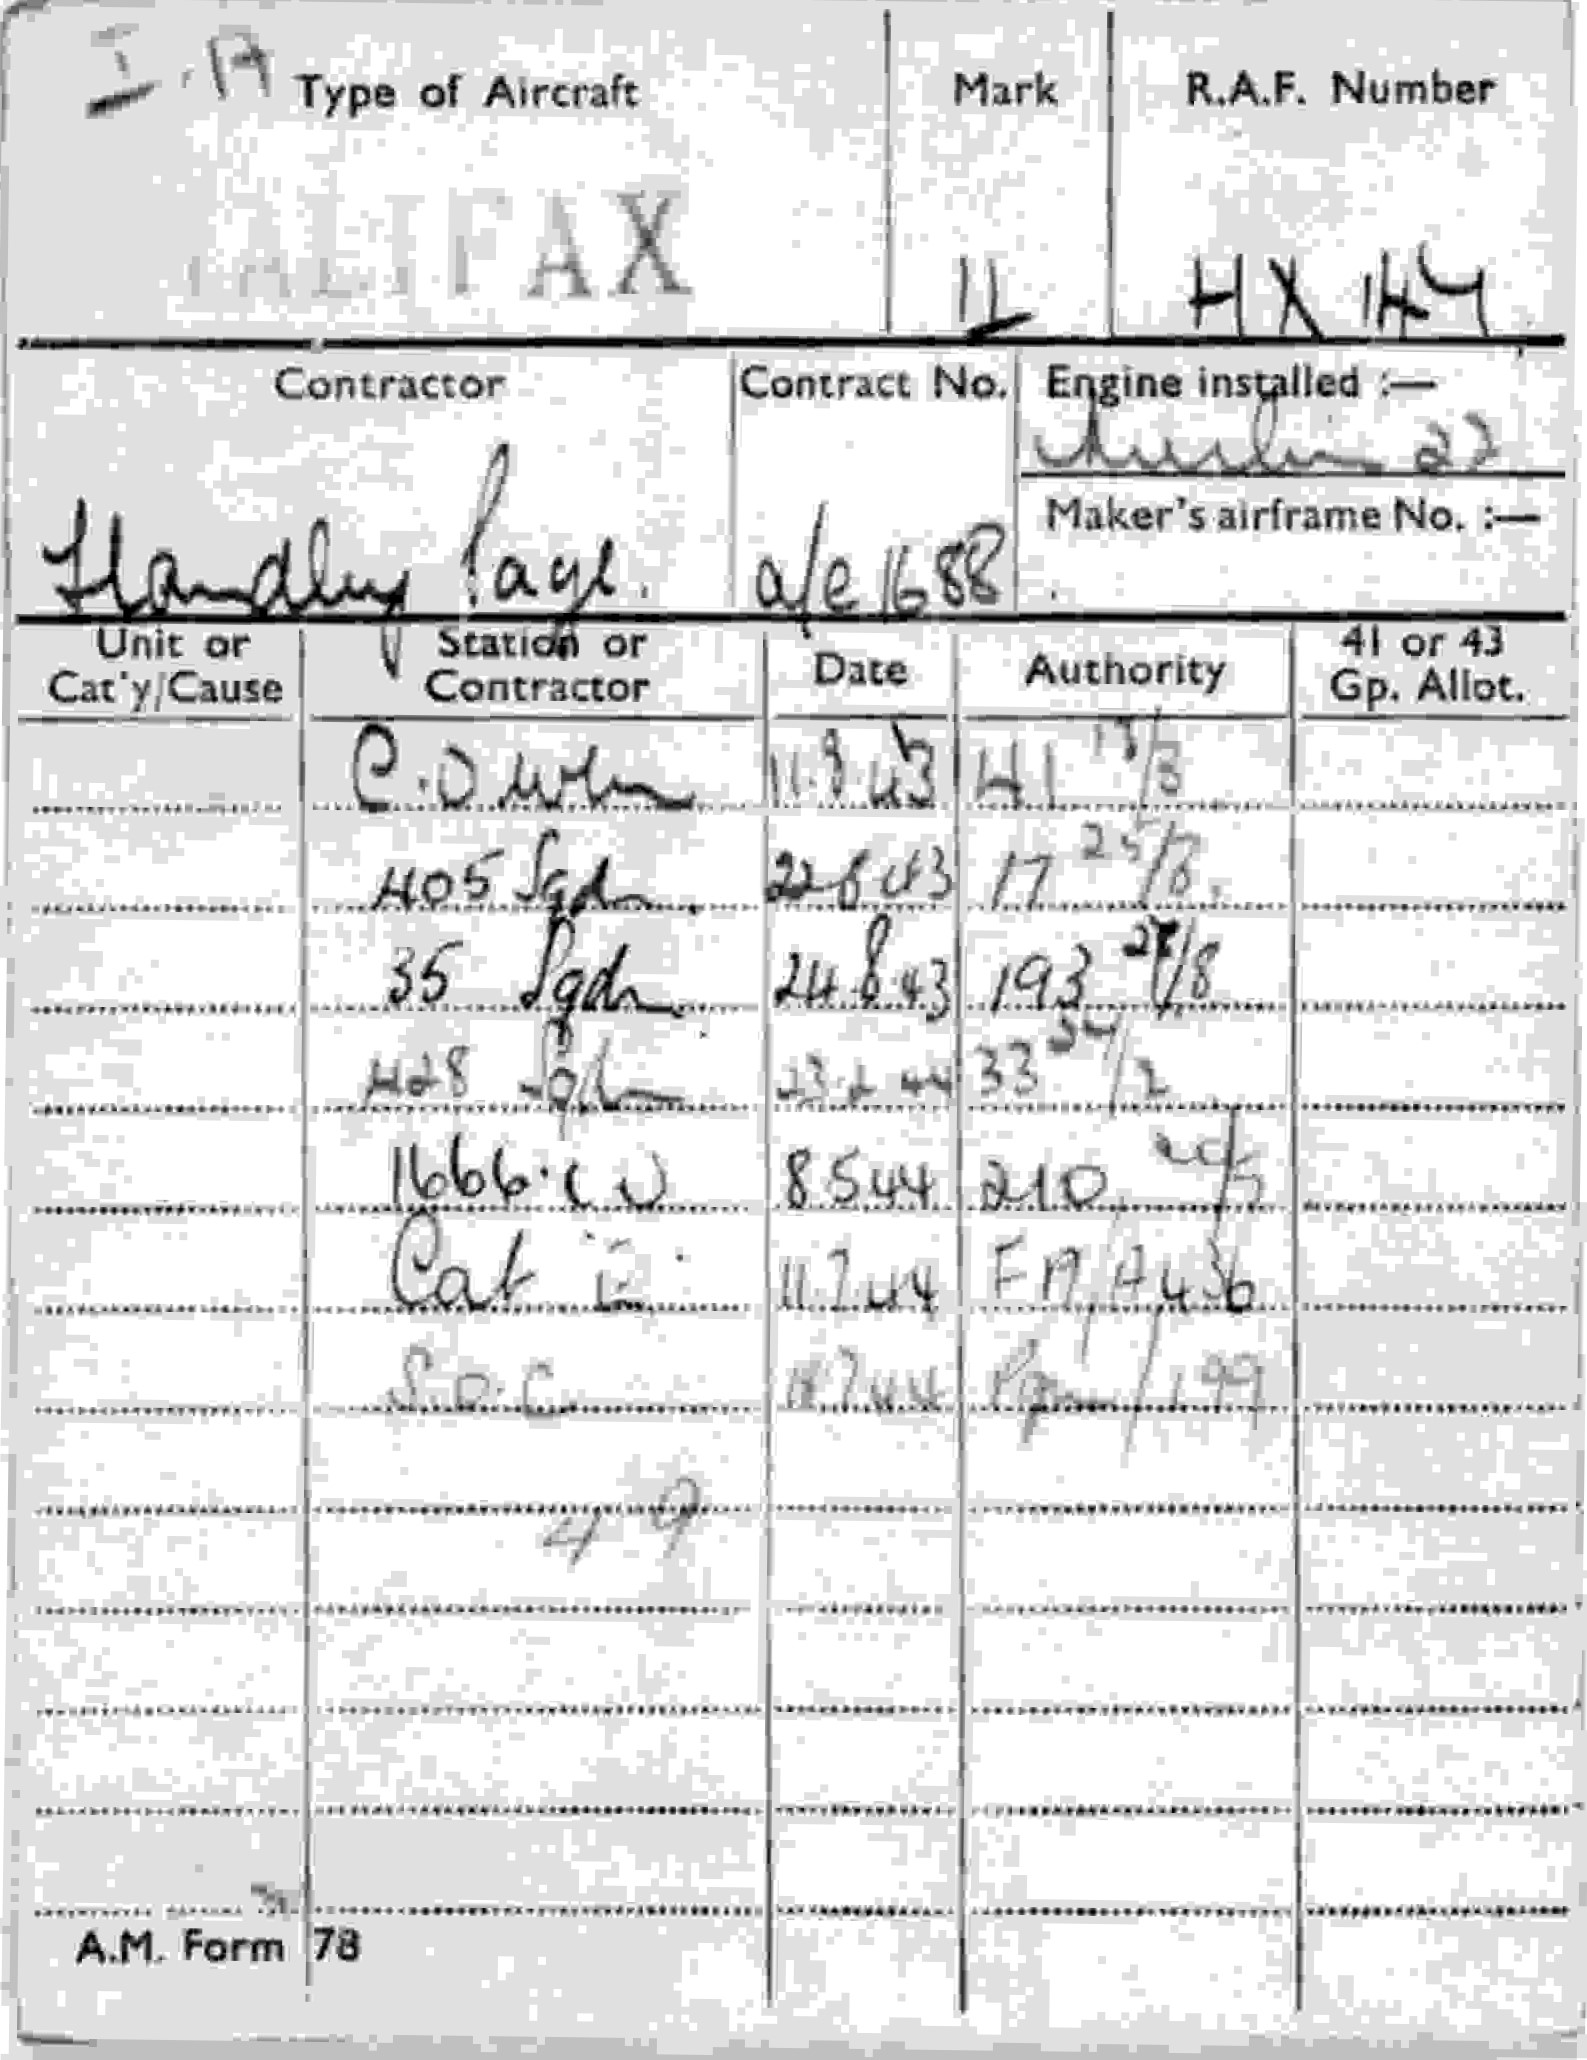 I.A
Type of Aircraft Mark R.A.F. Number
HALIFAX II HX 147
Contractor Contract No. Engine installed :—
Merlin 22
Maker's airframe No. :—
Handley Page. a/c 1688
Unit or Cat'y/Cause Station or Contractor Date Authority 41 or 43 Gp. Allot.
11.8.43 41
405 Sqdn. 22 8 43 17 25/8.
35 Sqdn. 24.8.43 193 /8
428 Sqdn 23.2.44 33 /2
1666. C U 8 5 44 210 /5
Cat E. 11.7.44 FA/A436
S.O.C 11.7.44 /199
49
A.M. Form 78